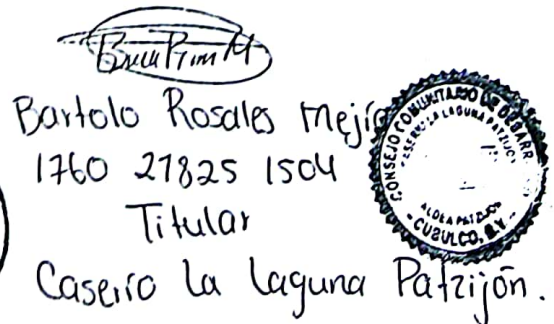 Bartolo Rosales Mejía
1760 27825 1504
Titular
Caserío La Laguna Patzijón.
CONSEJO COMUNITARIO DE DESARR
CASERIO LA LAGUNA PATZIJON
ALDEA PATZIJON
CUBULCO, B.V.